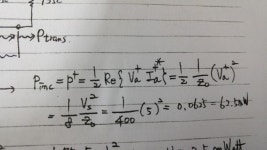 Psc
Ptrans.
→ Pinc = P⁺ = 1/2 Re{ Va⁺ Ia⁺* } = 1/2 1/Z0 (Va⁺)²
= 1/8 Vs²/Z0 = 1/400 (5)² = 0.0625 = 62.5mW
Watt